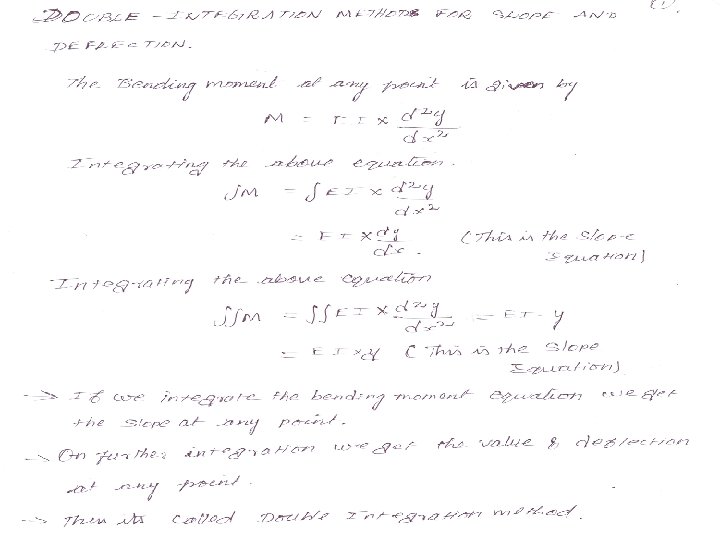 DOUBLE - INTEGRATION METHODS FOR SLOPE AND (1).
DEFLECTION.
The Bending moment at any point is given by
M = EI x d²y/dx²
Integrating the above equation.
∫M = ∫EI x d²y/dx²
= EI x dy/dx. (This is the Slope
Equation)
Integrating the above equation
∫∫M = ∫∫EI x d²y/dx² = EI - y
= EI x y (This is the Slope
Equation)
=> If we integrate the bending moment equation we get
the slope at any point.
-> On further integration we get the value & deflection
at any point.
-> Then its called Double Integration method.